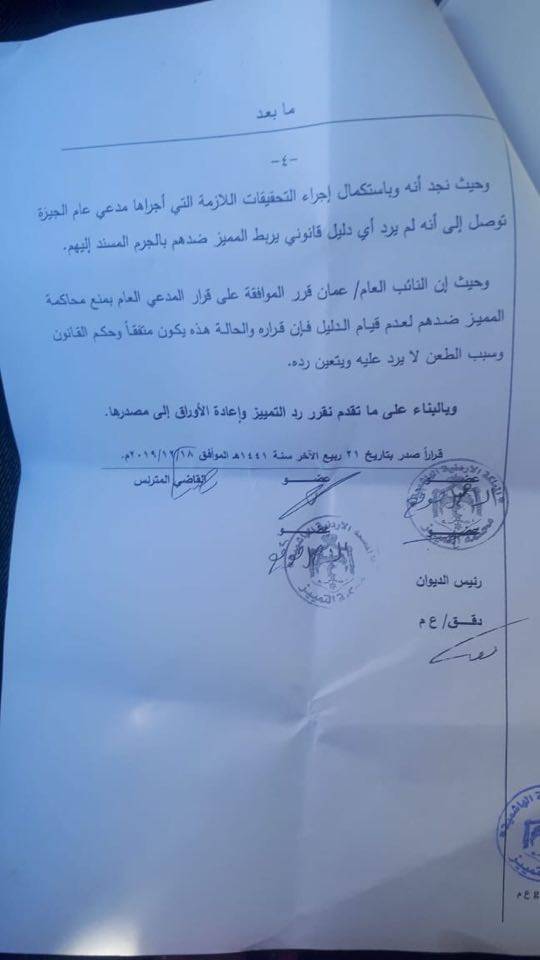 ما بعد
-٤-
وحيث نجد أنه وباستكمال إجراء التحقيقات اللازمة التي أجراها مدعي عام الجيزة
توصل إلى أنه لم يرد أي دليل قانوني يربط المميز ضدهم بالجرم المسند إليهم.
وحيث إن النائب العام/ عمان قرر الموافقة على قرار المدعي العام بمنع محاكمة
المميز ضدهم لعدم قيام الدليل فإن قراره والحالة هذه يكون متفقاً وحكم القانون
وسبب الطعن لا يرد عليه ويتعين رده.
وبالبناء على ما تقدم نقرر رد التمييز وإعادة الأوراق إلى مصدرها.
قراراً صدر بتاريخ ٢١ ربيع الآخر سنة ١٤٤١هـ الموافق ٢٠١٩/١٢/١٨م.
عضو عضو القاضي المترئس
عضو عضو
رئيس الديوان
دقق/ ع م